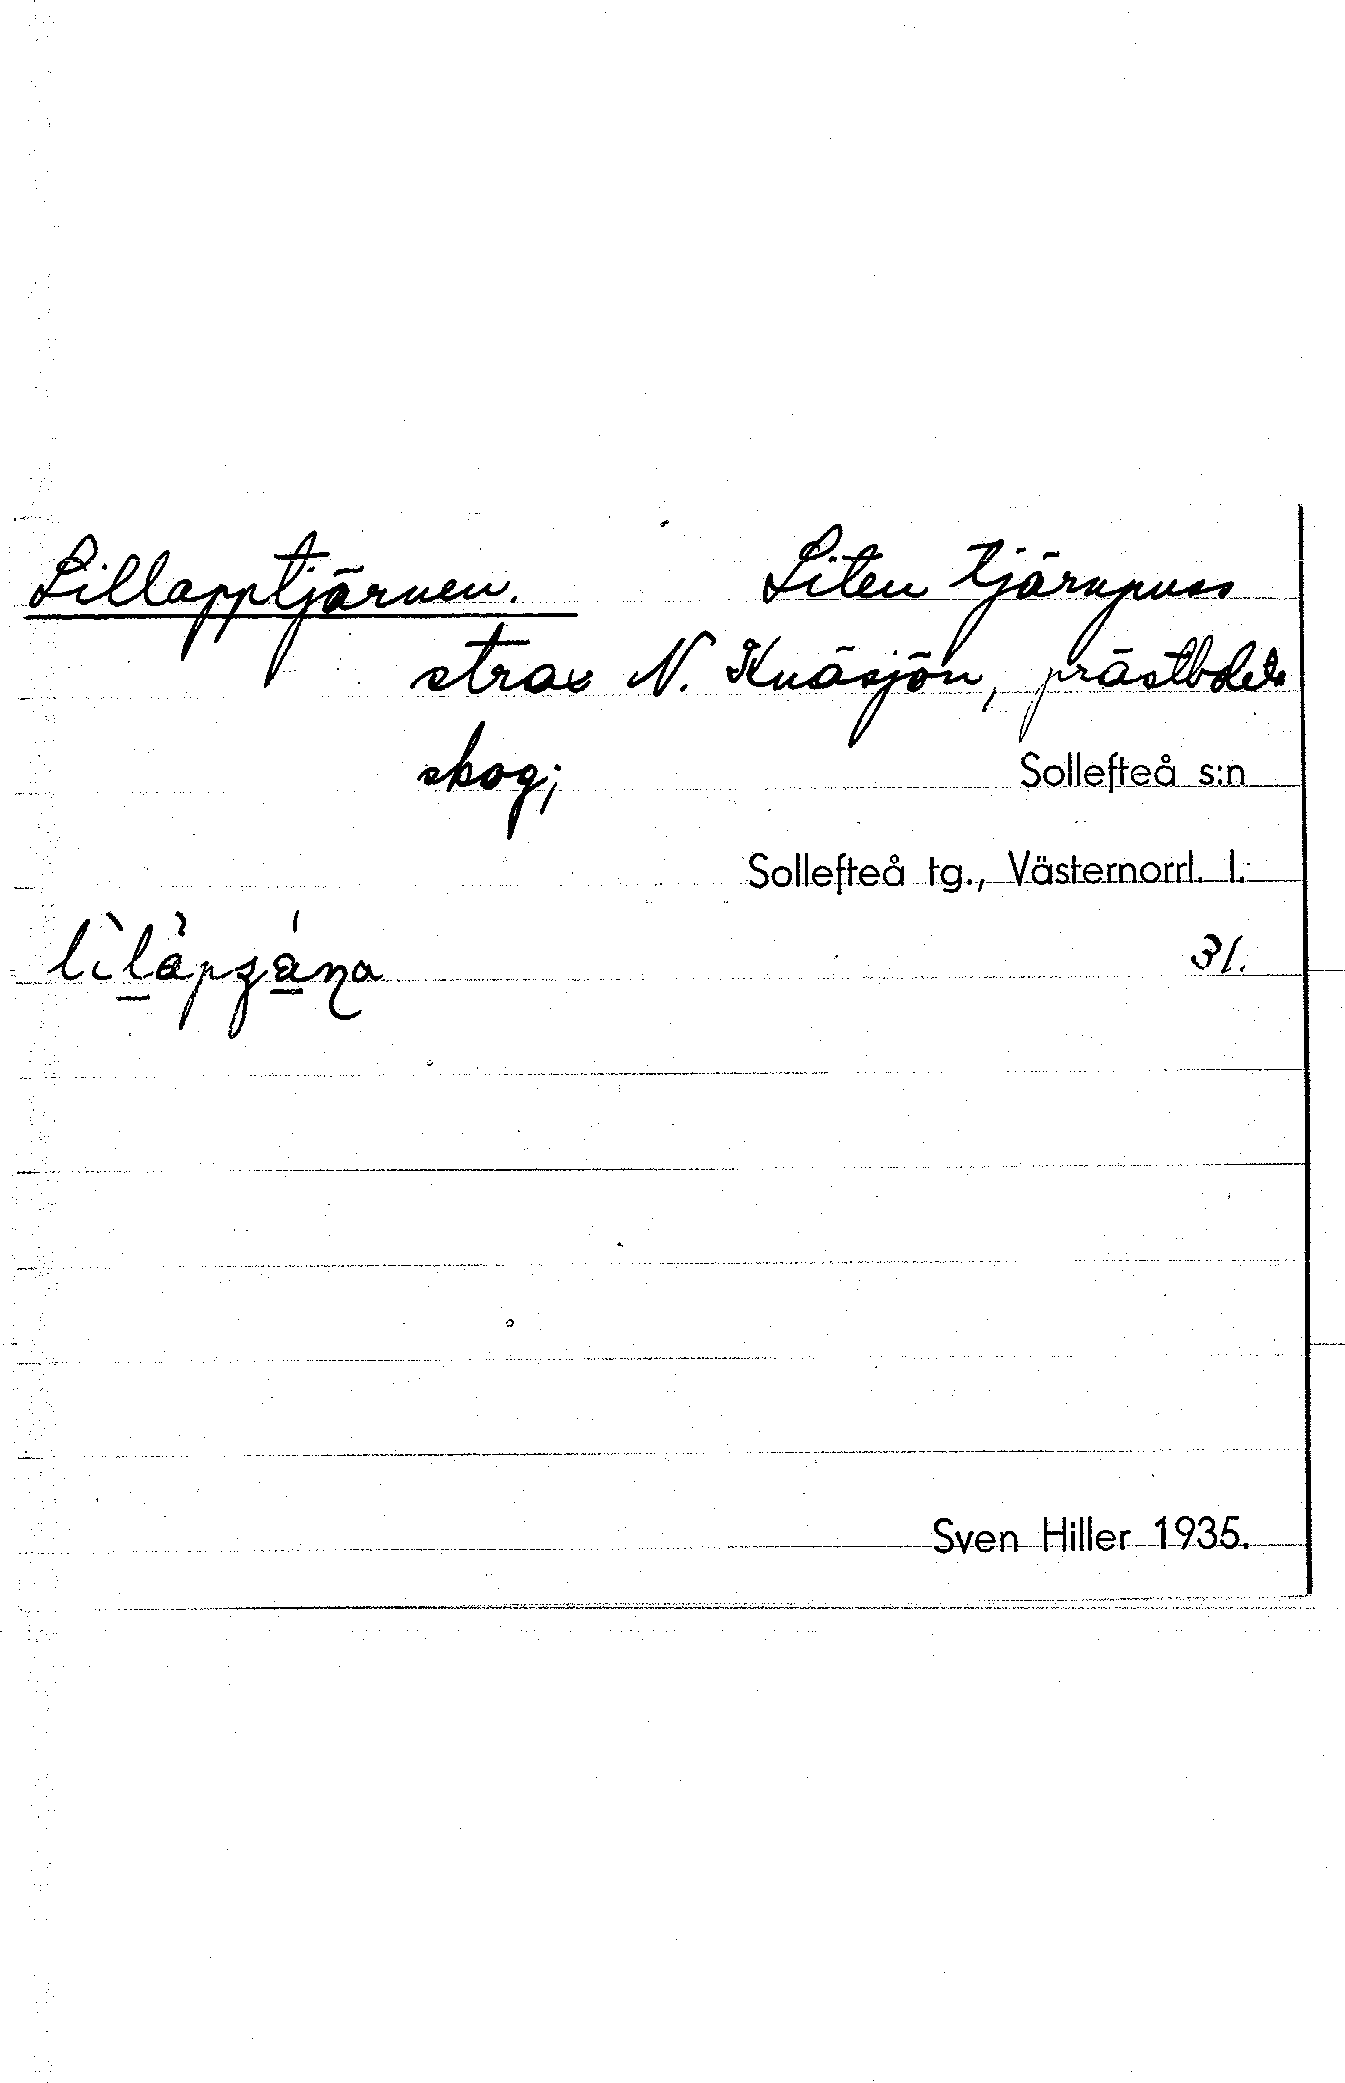 Lillapptjärnen. Liten tjärnpuss
strax N. Knäsjön, prästbolets
skog; Sollefteå s:n
Sollefteå tg., Västernorrl. l.
31.
Sven Hiller 1935.